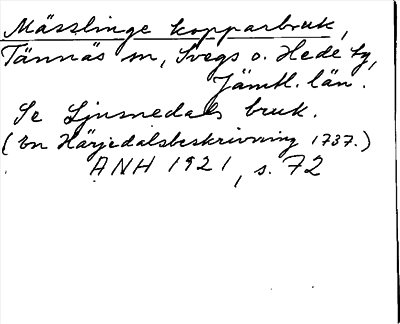 Mässlinge kopparbruk,
Tännäs sn, Svegs o. Hede tg,
Jämtl. län.
Se Ljusnedals bruk.
(En Härjedalsbeskrivning 1737.)
ANH 1921, s. 72